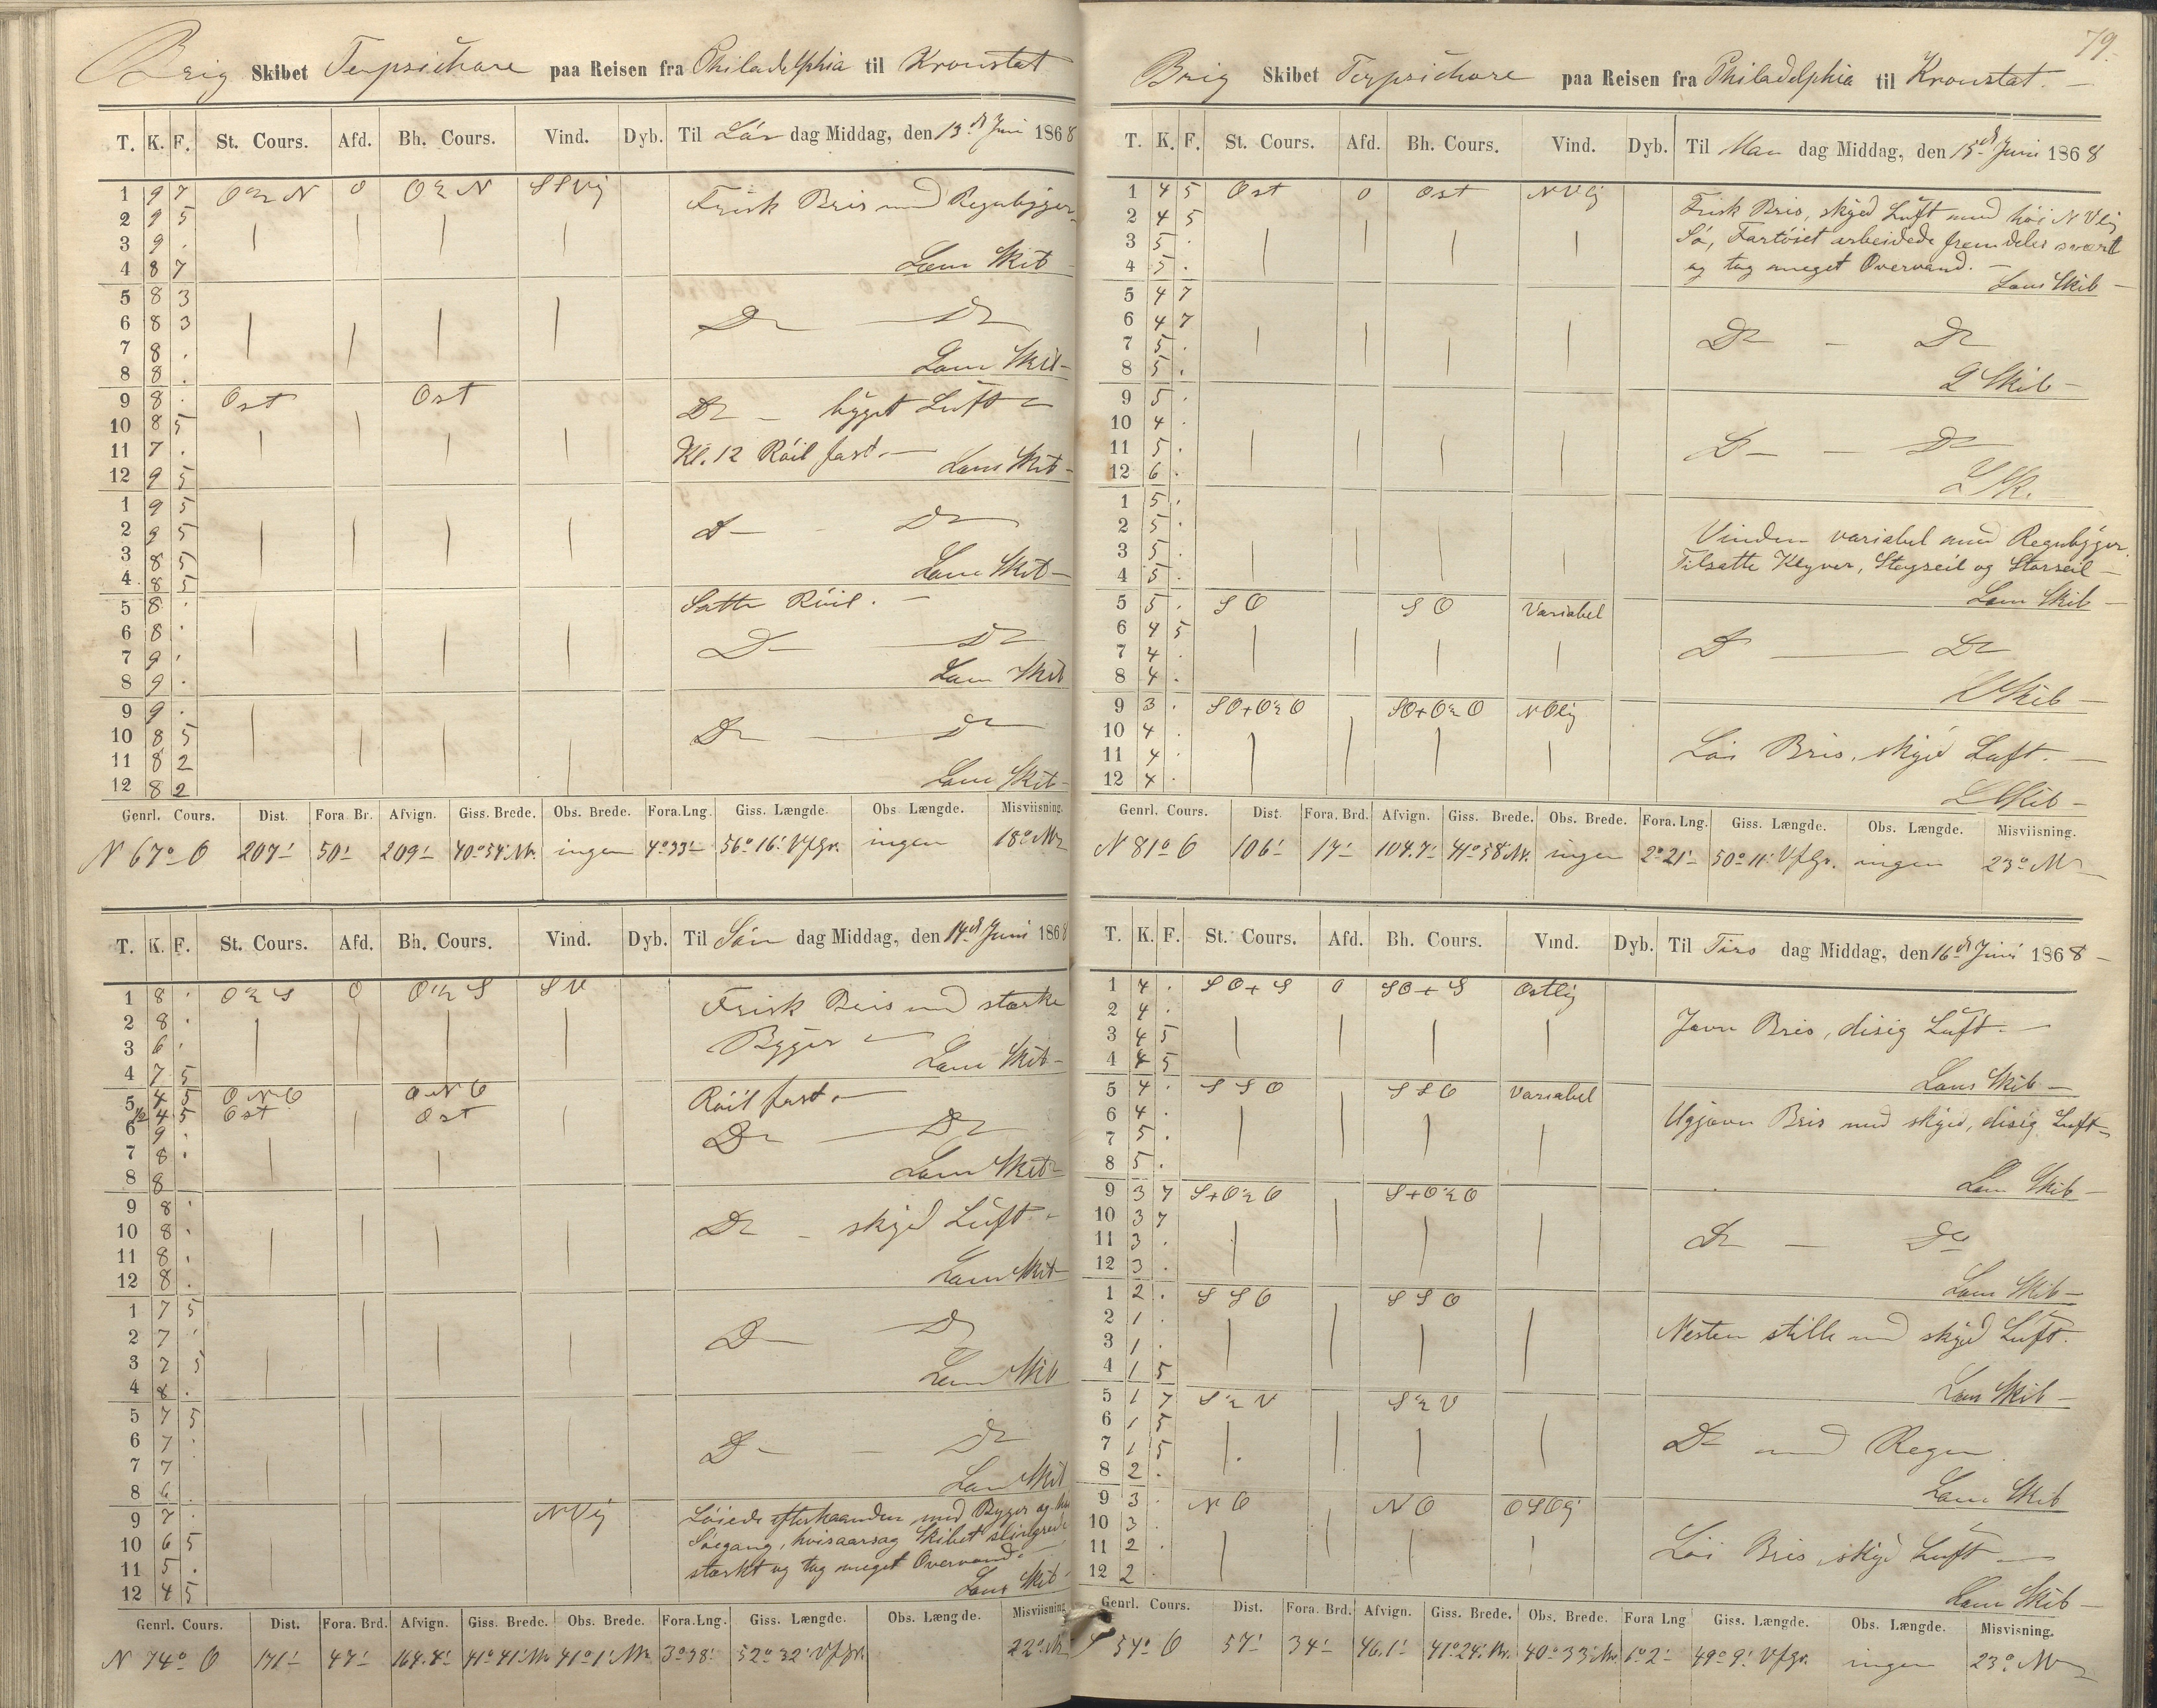 Brig Skibet Terpsichore paa Reisen fra Philadelphia til Kronstat
T. K. F. St. Cours. Afd. Bh. Cours. Vind. Dyb. Til Lör dag Middag, den 13de Juni 1868
1 9 7 O½N 0 O½N SSVlig
2 9 5 Frisk Bris med Regnbyger
3 9 .
4 8 7 Læns Skib
5 8 3
6 8 3 Do — Do
7 8 .
8 8 . Læns Skib
9 8 . Ost Ost Do — bÿget Lüft
10 8 5
11 7 . Kl. 12 Röil fast. —
12 9 5 Læns Skib
1 9 5
2 9 5 Do Do
3 8 5
4 8 5 Læns Skib
5 8 . Satte Röil. —
6 8 . Do — Do
7 9 .
8 9 . Læns Skib
9 9 .
10 8 5 Do — Do
11 8 2
12 8 2 Læns Skib
Genrl. Cours. Dist. Fora Br. Afvign. Giss. Brede. Obs. Brede. Fora. Lng. Giss. Længde. Obs Længde. Misviisning.
N 67° O 207' 50' 209' 40°54' Nr. ingen 4°33' 56°16' VfGr. ingen 18° NV
T. K. F. St. Cours. Afd. Bh. Cours. Vind. Dyb. Til Sön dag Middag, den 14de Juni 1868
1 8 . O½S 0 O½S SV Frisk Bris med stærke
2 8 .
3 6 . Byger
4 7 5 Læns Skib
5 4 5 ONO ONO Röil fast. —
½ 4 5 Ost Ost
6 9 . Do — Do
7 8 .
8 8 Læns Skib
9 8 .
10 8 . Do — skyed Lüft
11 8 .
12 8 . Læns Skib
1 7 5
2 7 . Do Do
3 7 5
4 8 . Læns Skib
5 7 5
6 7 . Do — Do
7 7
8 6 . Læns Skib
9 7 . NVlig Löiede efterhaanden med Byger og
10 6 5 Söegang, hvisaarsag Skibet slingrede
11 5 . stærkt og tog meget Overvand. —
12 4 5 Læns Skib
Genrl. Cours. Dist. Fora. Brd. Afvign. Giss. Brede. Obs. Brede. Fora. Lng. Giss. Længde. Obs. Længde. Misviisning
N 74° O 171' 47' 164.4' 41°41' Nr. 41°1' Nr. 3°38' 52°32' VfGr. 22° NV
79.
Brig Skibet Terpsichore paa Reisen fra Philadelphia til Kronstat. —
T. K. F. St. Cours. Afd. Bh. Cours. Vind. Dyb. Til Man dag Middag, den 15de Juni 1868
1 4 5 Ost 0 Ost NVlig Frisk Bris, skyed Lüft med höi NVlig
2 4 5
3 5 . Sö, Fartöiet arbeidede fremdeles svært
4 5 . og tog meget Overvand. — Læns Skib —
5 4 7
6 4 7 Do — Do
7 5 .
8 5 . L Skib —
9 5 .
10 4 .
11 5 . Do — Do
12 6 . L Sk.
1 5 .
2 5 . Vinden variabel med Regnbÿger.
3 5 . Tilsatte Klyver, Stagseil og Storseil —
4 5 .
5 5 . SO SO Variabel Læns Skib —
6 4 5
7 4 . Do — Do
8 4 .
9 3 . SO+O½O SO+O½O NOlig L Skib —
10 4 .
11 4 . Löi Bris, skyed Luft. —
12 4 . L Skib —
Genrl. Cours. Dist. Fora. Brd. Afvign. Giss. Brede. Obs. Brede. Fora. Lng. Giss. Længde. Obs. Længde. Misviisning.
N 81° O 106' 17' 104.7' 41°58' Nr. ingen 2°21' 50°11' VfGr. ingen 23° NV
T. K. F. St. Cours. Afd. Bh. Cours. Vind. Dyb. Til Tirs dag Middag, den 16de Juni 1868 —
1 4 . SO+S 0 SO+S Ostlig
2 4 . Jævn Bris, disig Lüft. —
3 4 5
4 4 5 Læns Skib —
5 4 . SSO SSO Variabel
6 4 . Ugjævn Bris med skyed, disig Luft
7 5 .
8 5 . Læns Skib —
9 3 7 S+O½O S+O½O
10 3 7
11 3 . Do — Do
12 3 . Læns Skib —
1 2 . SSO SSO
2 1 . Nesten stille med skyed Lüft.
3 1 .
4 1 5 Læns Skib —
5 1 7 S½V S½V
6 1 5 Do med Regn
7 1 5
8 2 . Læns Skib
9 3 . NO NO OSOlig
10 3 .
11 2 . Löi Bris, skyed Luft —
12 2 . Læns Skib —
Genrl. Cours. Dist. Fora. Brd. Afvign. Giss. Brede. Obs. Brede. Fora Lng Giss. Længde. Obs. Længde. Misvisning.
S 54° O 57' 34' 46.1' 41°24' Nr. 40°33' Nr. 1°2' 49°9' VfGr. ingen 23° NV